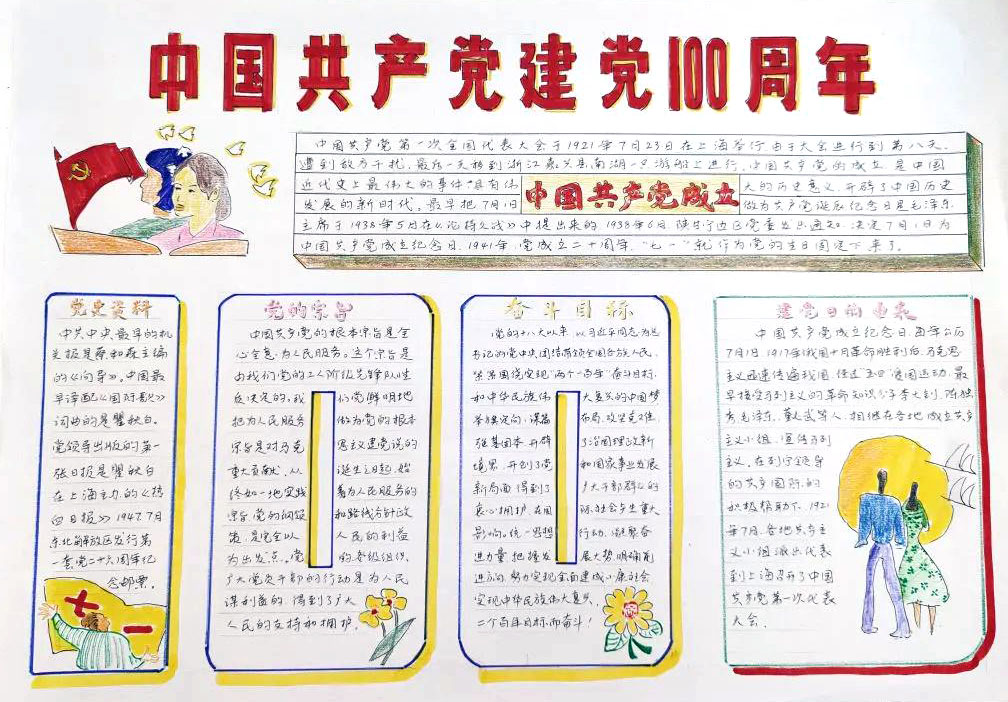 中国共产党建党100周年
中国共产党第一次全国代表大会于1921年7月23日在上海举行由于大会进行到第八天、
遭到敌方干扰,最后一天移到浙江嘉兴县南湖一只游船上进行、中国共产党的成立是中国
近代史上最伟大的事件 具有伟
大的历史意义、开辟了中国历史
发展的新时代、最早把7月1日
做为共产党诞辰纪念日是毛泽东
中国共产党成立
主席于1938年5月在《论持久战》中提出来的 1938年6月 陕甘宁边区党委发出通知、决定7月1日为
中国共产党成立纪念日、1941年、党成立二十周年、“七一”就作为党的生日固定下来了。
党史资料
中共中央最早的机
关报是蔡和森主编
的《向导》。中国最
早译配《国际歌》
词曲的是瞿秋白。
党领导出版的第一
张日报是瞿秋白
在上海主办的《热
血日报》 1947、7月
东北解放区发行第
一套党二十六周年纪
念邮票。
七一
党的宗旨
中国共产党的根本宗旨是全
心全意、为人民服务。这个宗旨是
由我们党的工人阶级先锋队性
质决定的、我们党鲜明地
把为人民服务做为党的根本
宗旨是对马克思主义建党说的
重大贡献、从诞生之日起、始
终如一地实践着为人民服务的
宗旨、党的纲领和路线方针政
策、是党全以人民的利益
为出发点。党的各级组织、
广大党员干部的行动是为人民
谋利益的、得到了广大
人民的支持和拥护。
奋斗目标
党的十八大以来、以习近平同志为总
书记的党中央、团结带领全国各族人民、
紧紧围绕实现“两个一百年”奋斗目标
和中华民族伟大复兴的中国梦
举旗定向、谋篇布局、攻坚克难、
强基固本 开辟了治国理政新
境界、开创了党和国家事业发展
新局面 得到了广大干部群众的
衷心拥护、在国际社会产生重大
影响。统一思想行动、凝聚奋
进力量 把握发展大势、明确前
进方向、努力实现全面建成小康社会
实现中华民族伟大复兴、
二个百年目标而奋斗!
建党日的由来
中国共产党成立纪念日、每年公历
7月1日、1917年俄国十月革命胜利后、马克思
主义迅速传遍我国、经过“五四”爱国运动、最
早接受马列主义的革命知识分子李大钊、陈独
秀、毛泽东、董必武等人、相继在各地成立共产
主义小组、宣传马列
主义、在列宁领导
的共产国际的
积极帮助下、1921
年7月、各地共产主
义小组派出代表
到上海召开了中国
共产党第一次代表
大会.